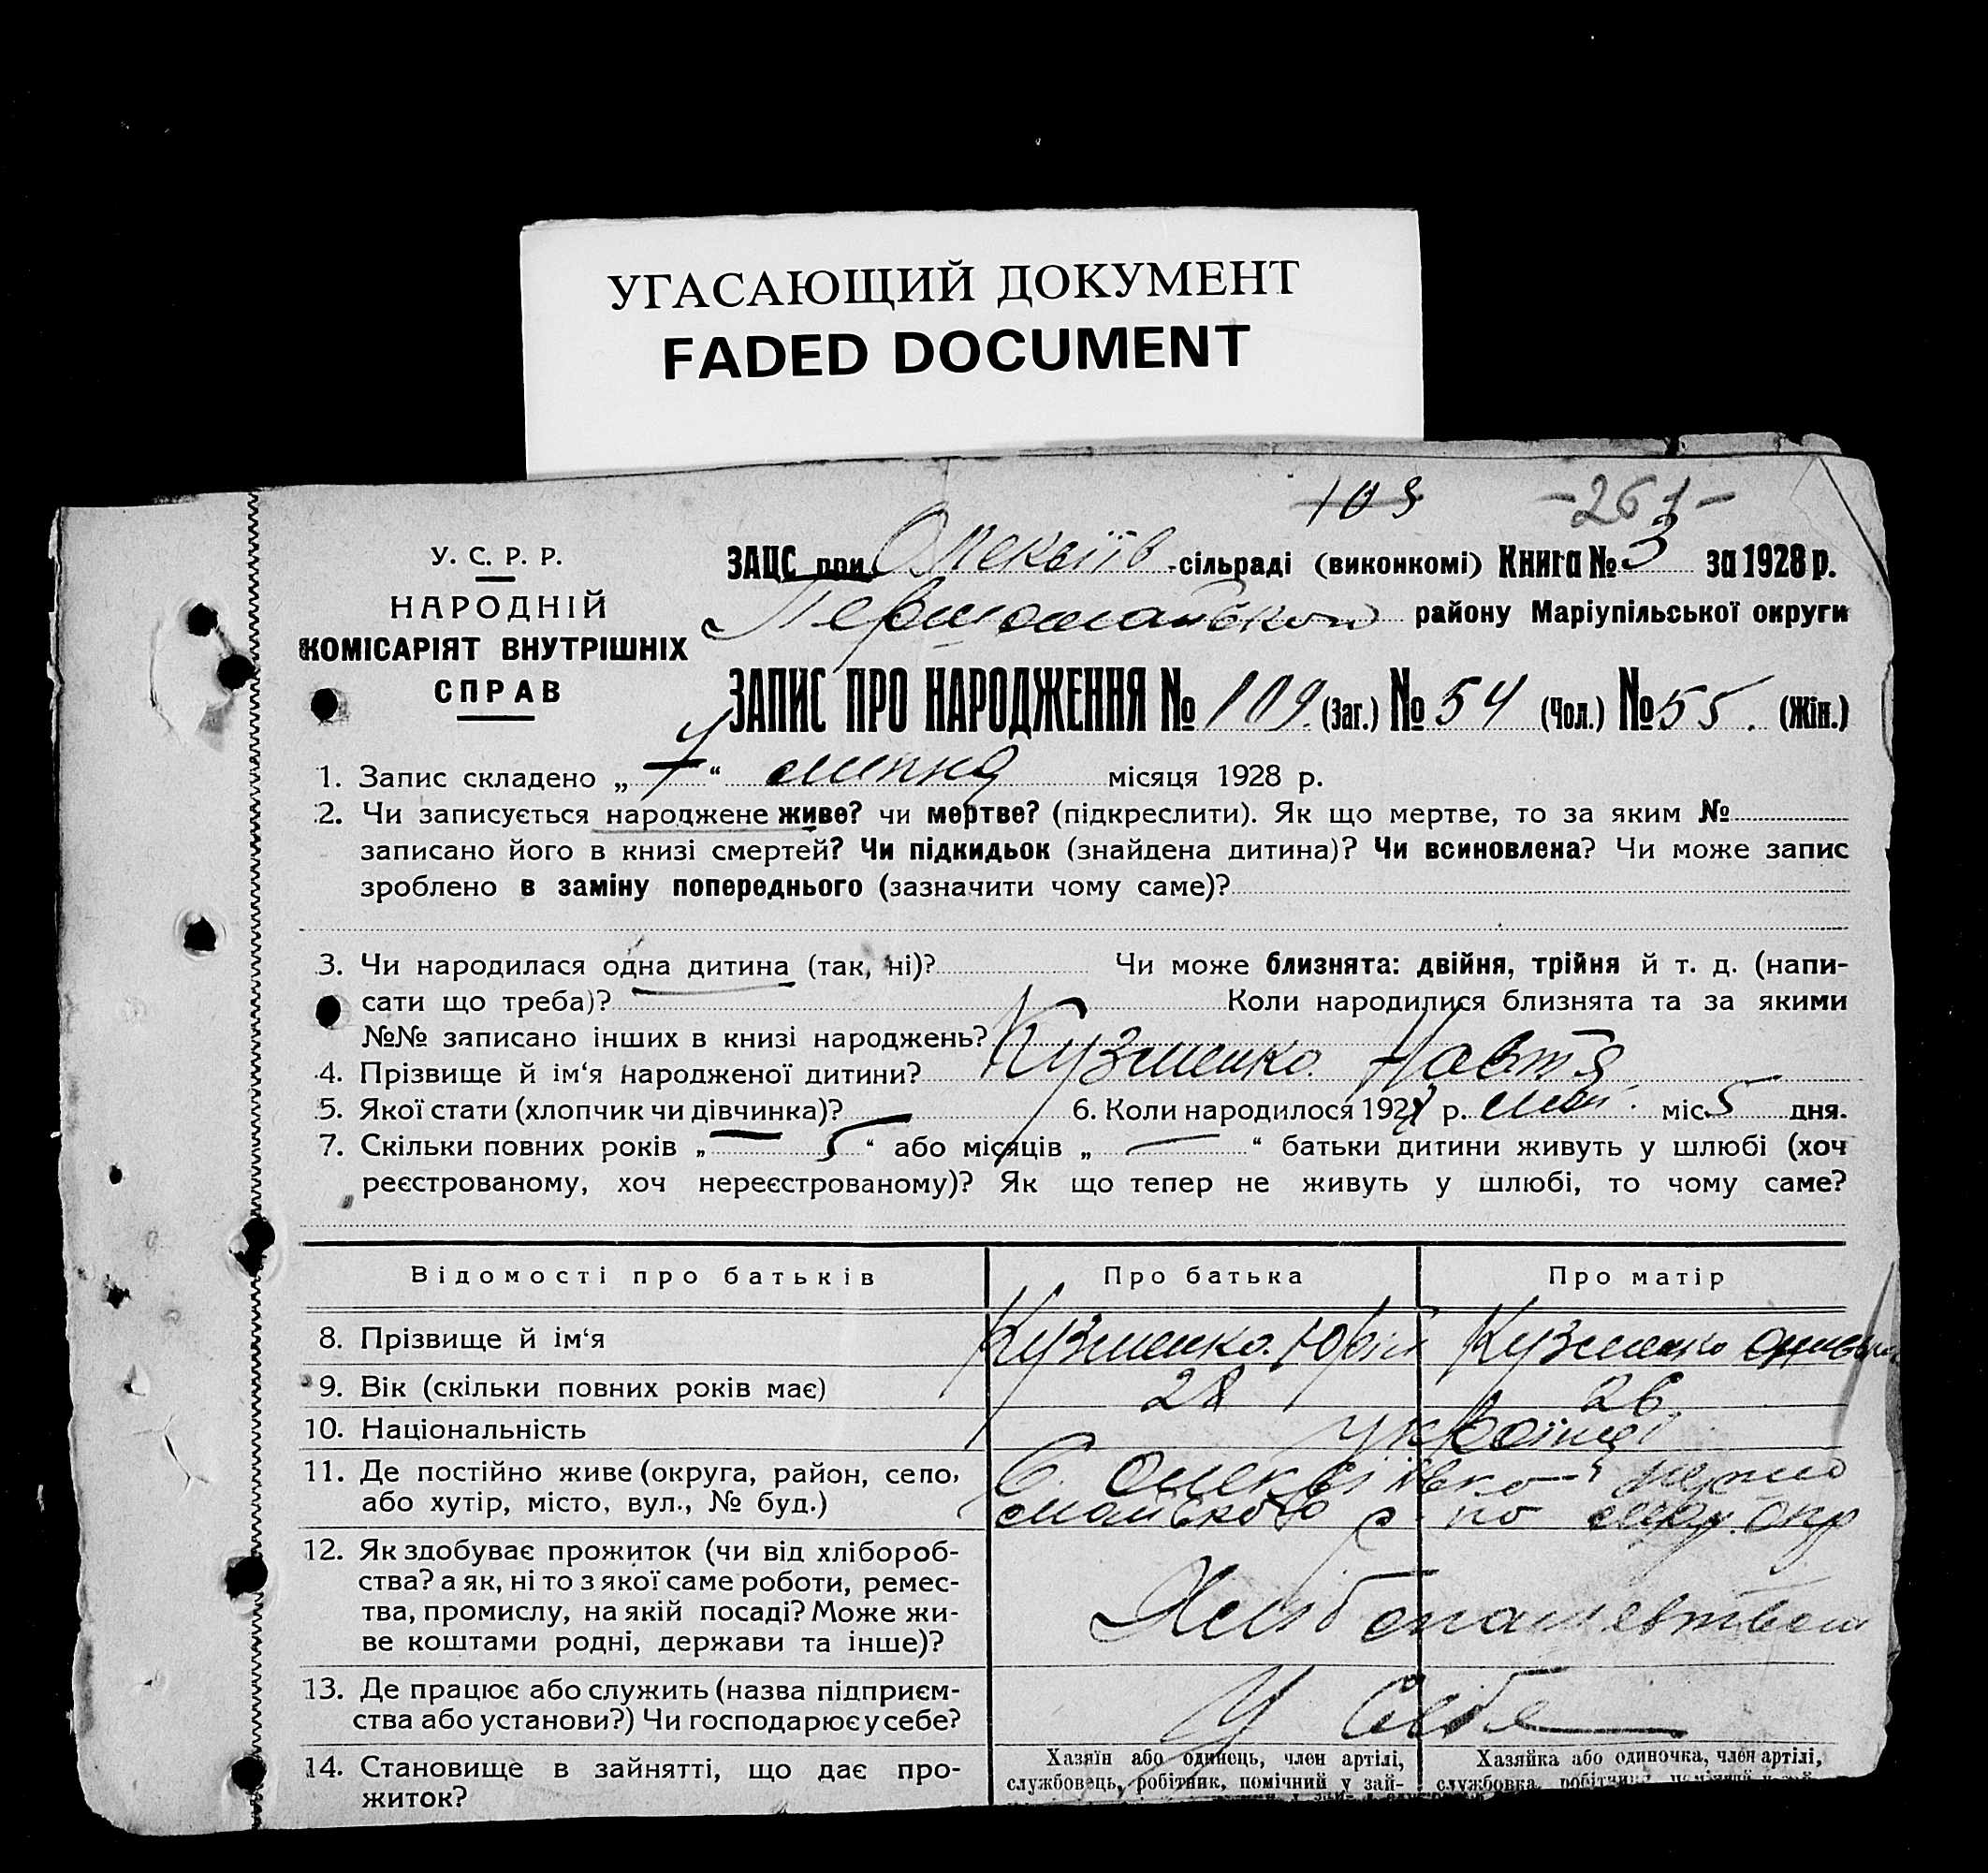 УГАСАЮЩИЙ ДОКУМЕНТ
FADED DOCUMENT
103
-261-
У. С. Р. Р.
НАРОДНІЙ
КОМІСАРІЯТ ВНУТРІШНІХ
СПРАВ
ЗАЦС при Олексіїв сільраді (виконкомі) Книга № 3 за 1928 р.
Першомайского району Маріупільської округи
ЗАПИС ПРО НАРОДЖЕННЯ № 109 (Заг.) № 54 (Чол.) № 55. (Жін.)
1. Запис складено „ “ липня місяця 1928 р.
2. Чи записується народжене живе? чи мертве? (підкреслити). Як що мертве, то за яким №
записано його в книзі смертей? Чи підкидьок (знайдена дитина)? Чи всиновлена? Чи може запис
зроблено в заміну попереднього (зазначити чому саме)?
3. Чи народилася одна дитина (так, ні)? Чи може близнята: двійня, трійня й т. д. (напи-
сати що треба)? Коли народилися близнята та за якими
№№ записано інших в книзі народжень?
4. Прізвище й ім‘я народженої дитини? Кузменко
5. Якої стати (хлопчик чи дівчинка)? 6. Коли народилося 192 р. міс 5 дня.
7. Скільки повних років „ 5 “ або місяців „ — “ батьки дитини живуть у шлюбі (хоч
реєстрованому, хоч нереєстрованому)? Як що тепер не живуть у шлюбі, то чому саме?
Відомості про батьків Про батька Про матір
8. Прізвище й ім‘я Кузменко Юрій Кузменко
9. Вік (скільки повних років має) 28 26
10. Національність українці
11. Де постійно живе (округа, район, село,
або хутір, місто, вул., № буд.)
С. Олексіївка Першо
майского р. по окр
12. Як здобуває прожиток (чи від хлібороб-
ства? а як, ні то з якої саме роботи, ремес-
тва, промислу, на якій посаді? Може жи-
ве коштами родні, держави та інше)?
13. Де працює або служить (назва підприєм-
ства або установи?) Чи господарює у себе?
У себе
14. Становище в зайнятті, що дає про-
житок?
Хазяїн або одинець, член артілі,
службовець, робітник, помічний у зай-
Хазяйка або одиночка, член артілі,
службовка,